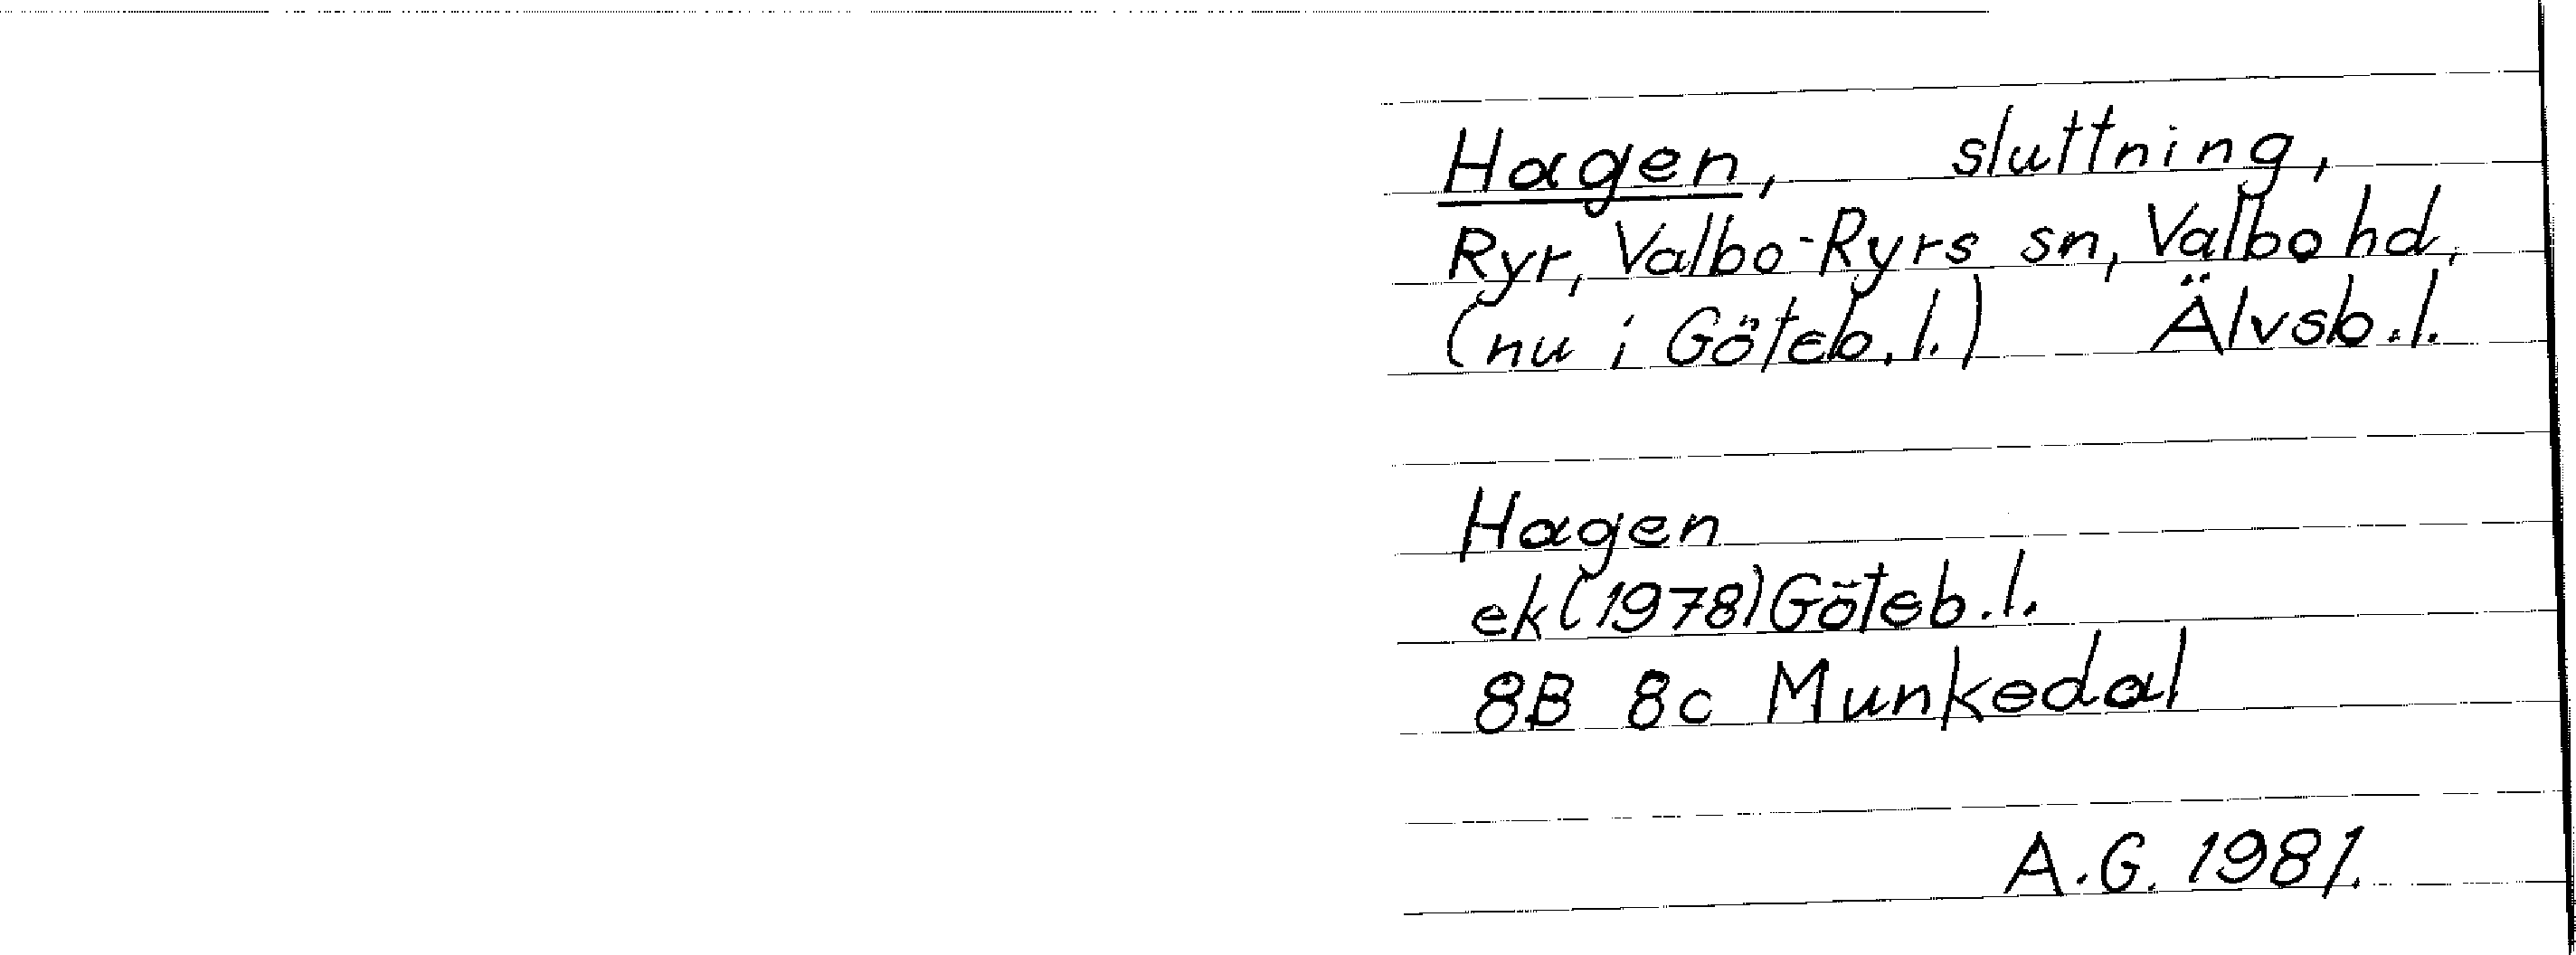 Hagen, sluttning,
Ryr, Valbo-Ryrs sn, Valbo hd,
(nu i Göteb.l.) Älvsb.l.
Hagen
ek (1978) Göteb.l.
8B 8c Munkedal
A.G. 1981.